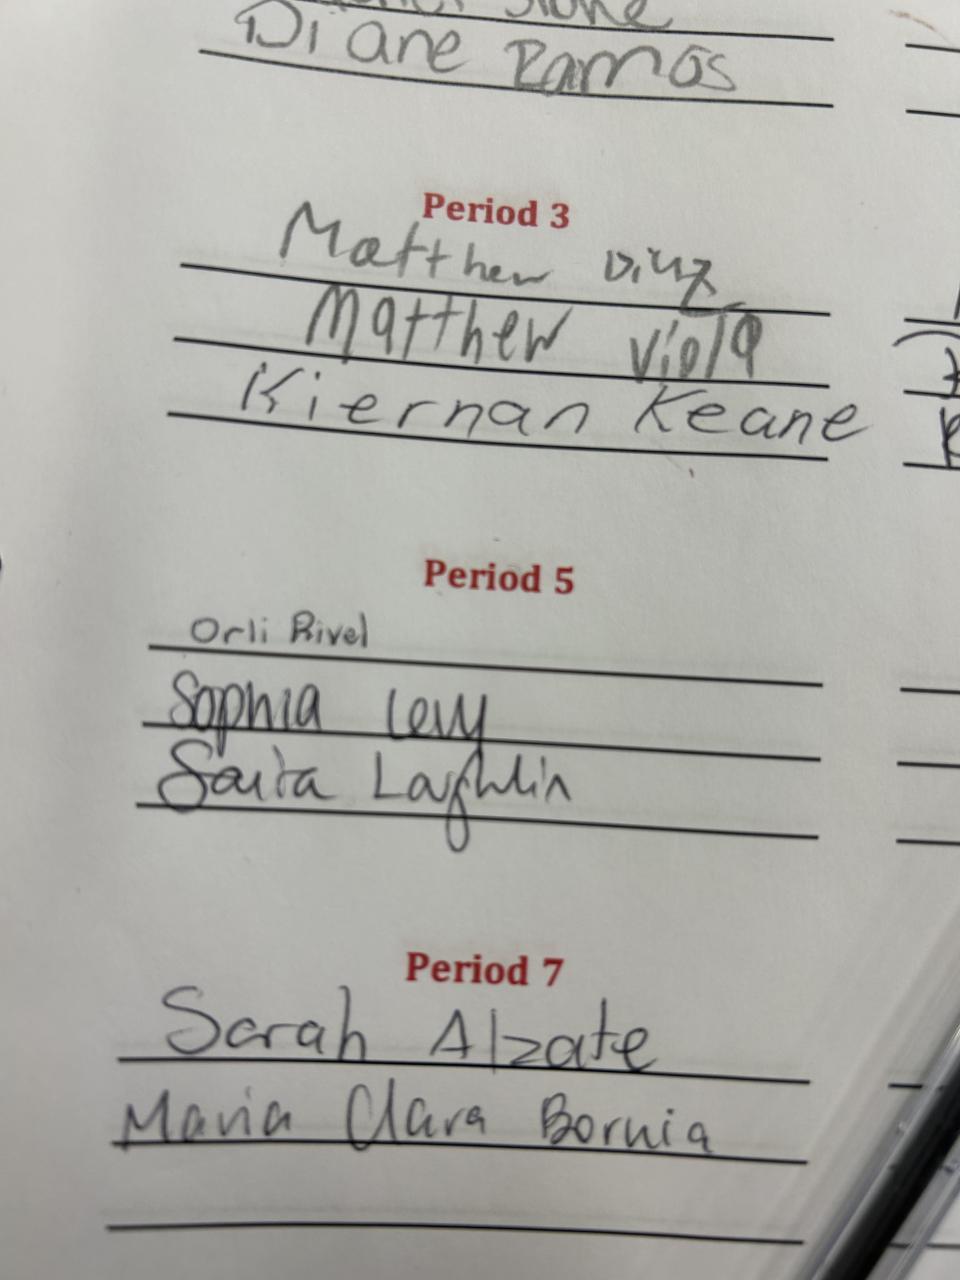 Diane Ramos
Period 3
Matthew
Matthew Viola
Kiernan Keane
Period 5
Orli Rivel
Sophia Levy
Laghlin
Period 7
Sarah Alzate
Maria Clara Bornia